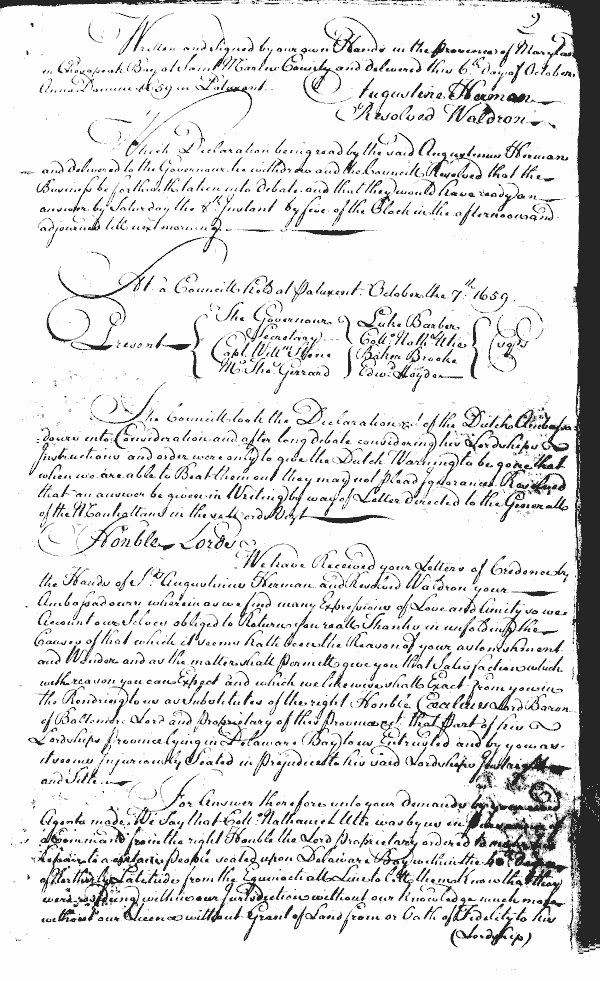 2
Written and Signed by our own Hands in the Province of Maryland
in Chesapeak Bay at Saint Maries County and delivered this 6th day of October
Anno Domini 1659 in Patuxent
Augustine Herman
Resolved Waldron
Which Declaration being read by the said Augustinus Herman
and delivered to the Governour he withdrew and the Councill Resolved that the
Business be forthwith taken into debate and that they would have ready an
answer by Saturday the 8th Instant by five of the Clock in the afternoon and
adjourned till next morning
At a Councill held at Patuxent October the 7th 1659.
Present { The Governour } Luke Barber } Esqrs
Secretary Collo Nath: Utie
Capt Willm Stone Baker Brooke
Mr Tho: Gerrard Edw: Lloyd
The Councill took the Declaration &c of the Dutch Ambassa-
dours into Consideration and after long debate considering his Lordships
Instructions and order were only to give the Dutch Warning to be gone that
when we are able to Beat them out they may not plead ignorance Resolved
that an answer be given in Writing by way of Letter directed to the Generall
of the Manhattans in these words Vizt
Honble Lords
We have Received your Letters of Credence by
the Hands of Augustinus Herman and Resolved Waldron your
Ambassadours wherein as we find many Expressions of Love and Amity so we
Account our Selves obliged to Return you reall thanks in unfolding the
Causes of that which it seems hath been the Reason of your astonishment
and Wonder and as the matter shall permitt give you that Satisfaction which
with reason you can Expect and which we likewise shall Exact from you in
the Rendring to us as Substitutes of the right Honble Cecilius Lord Baron
of Baltimore Lord and Proprietary of this Province &ct that Part of his
Lordships Province lying in Delaware Bay to us Entrusted and by you as
it seems injuriously Seated in Prejudice to his said Lordships Just right
and Title
For Answer therefore unto your demands by
Agents made We say that Collo Nathaniell Utie was by us in pursuance of
a Command from the right Honble the Lord Proprietary ordered to make
Repair to a certain People seated upon Delaware Bay within the 40th Degree
of Northerly Latitude from the Equinoctiall Line to lett them Know that they
were residing within our Jurisdiction without our Knowledge much more
without our Licence without Grant of Land from or Oath of Fidelity to his
(Lordship)